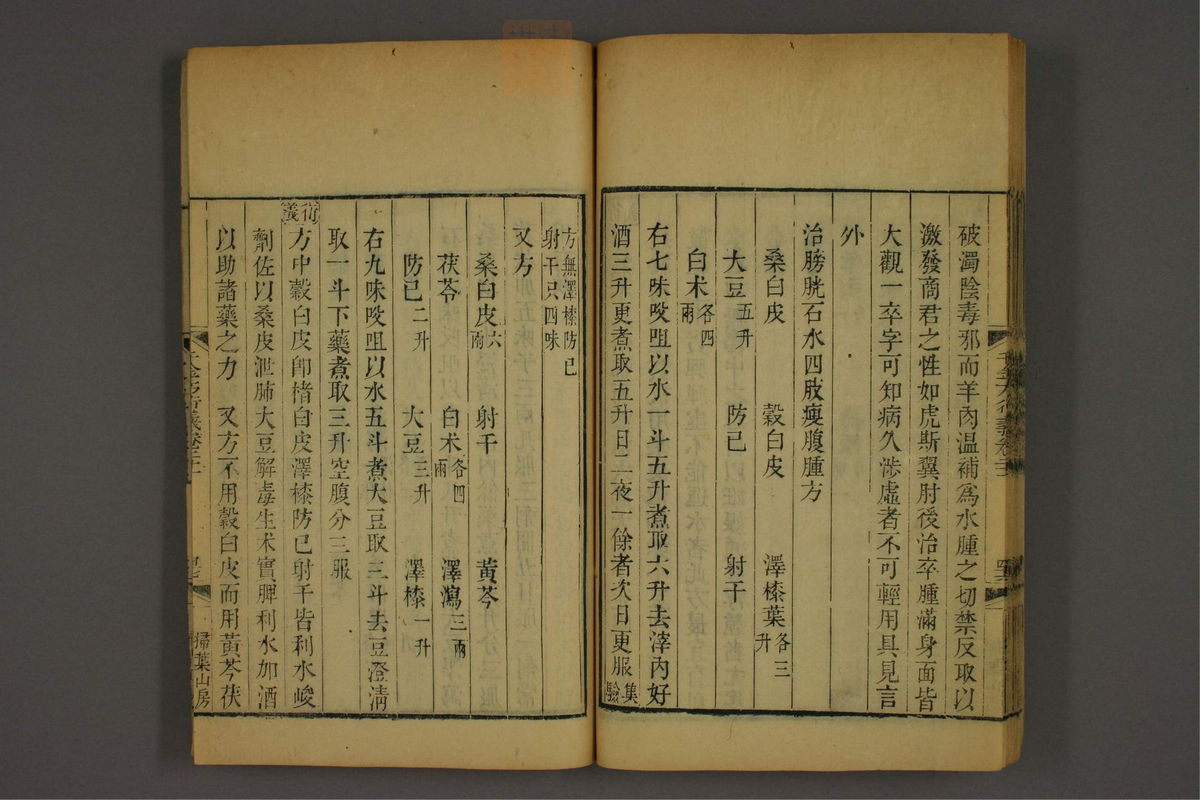 破濁陰毒邪而羊肉温補爲水腫之切禁反取以
激發商君之性如虎斯翼肘後治卒腫滿身面皆
大觀一卒字可知病久渉虛者不可輕用具見言
外
治膀胱石水四肢瘦腹腫方
桑白皮 穀白皮 澤𣾰葉各三升
大豆五升 防己 射干
白术各四兩
右七味㕮咀以水一斗五升煮取六升去滓內好
酒三升更煮取五升日二夜一餘者次日更服集驗
方無澤𣾰防己
射干只四味
又方
桑白皮六兩 射干 黃芩
茯苓 白术各四兩 澤瀉三兩
防己二升 大豆三升 澤𣾰一升
右九味㕮咀以水五斗煮大豆取三斗去豆澄淸
取一斗下藥煮取三升空腹分三服
衍義
方中穀白皮卽楮白皮澤𣾰防己射干皆利水峻
劑佐以桑皮泄肺大豆解毒生术實脾利水加酒
以助諸藥之力 又方不用穀白皮而用黃芩茯
掃葉山房